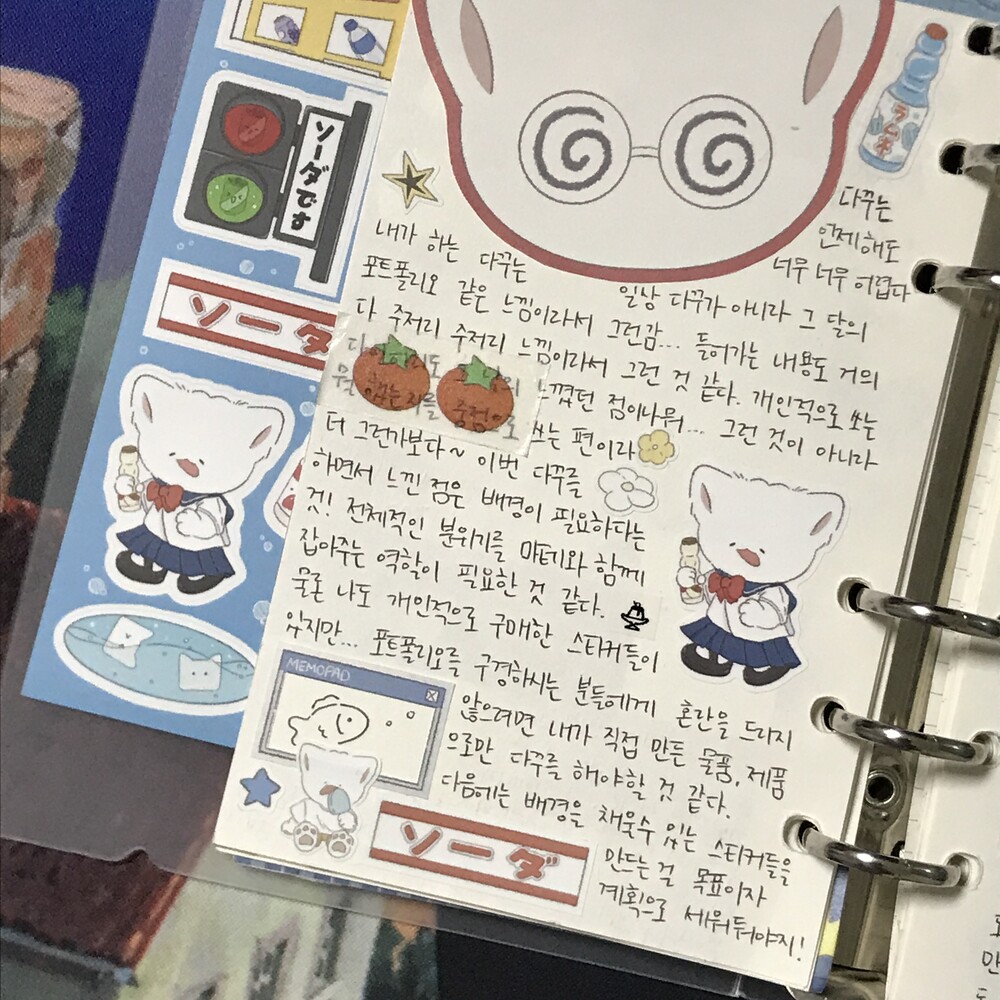 ソーダです
ソーダ
ラムネ
다꾸는
언제해도
너무 너무 어렵다
내가 하는 다꾸는 일상 다꾸가 아니라 그 달의
포트폴리오 같은 느낌이라서 그런감... 들어가는 내용도 거의
다 주저리 주저리 느낌이라서 그런 것 같다. 개인적으로 쓰는
느꼈던 점이나뭐... 그런 것이 아니라
뭘 했는지를 중점으로 쓰는 편이라
더 그런가보다~ 이번 다꾸를
하면서 느낀 점은 배경이 필요하다는
것! 전체적인 분위기를 마테와 함께
잡아주는 역할이 필요한 것 같다.
물론 나도 개인적으로 구매한 스티커들이
있지만... 포트폴리오를 구경하시는 분들에게 혼란을 드리지
MEMOPAD
않으려면 내가 직접 만든 물품, 제품
으로만 다꾸를 해야할 것 같다.
다음에는 배경을 채울수 있는 스티커들을
만드는걸 목표이자
계획으로 세워둬야지!
ソーダ
만